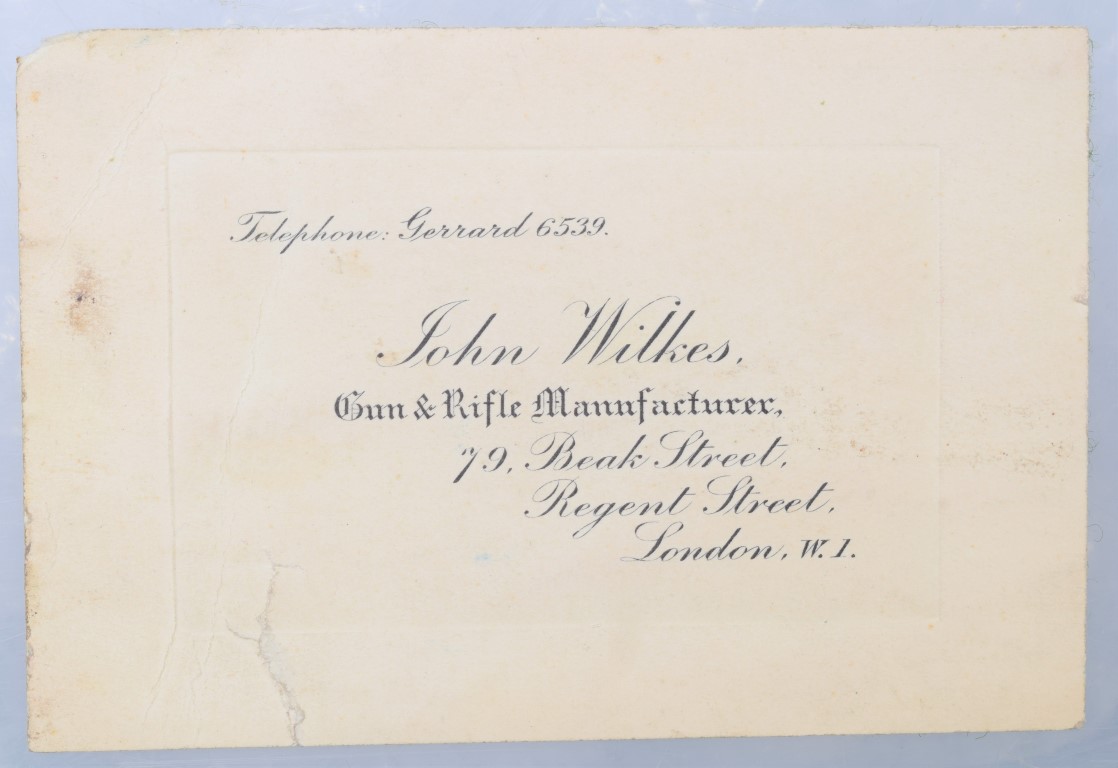 Telephone: Gerrard 6539.
John Wilkes,
Gun & Rifle Manufacturer,
79, Beak Street,
Regent Street,
London, W.1.